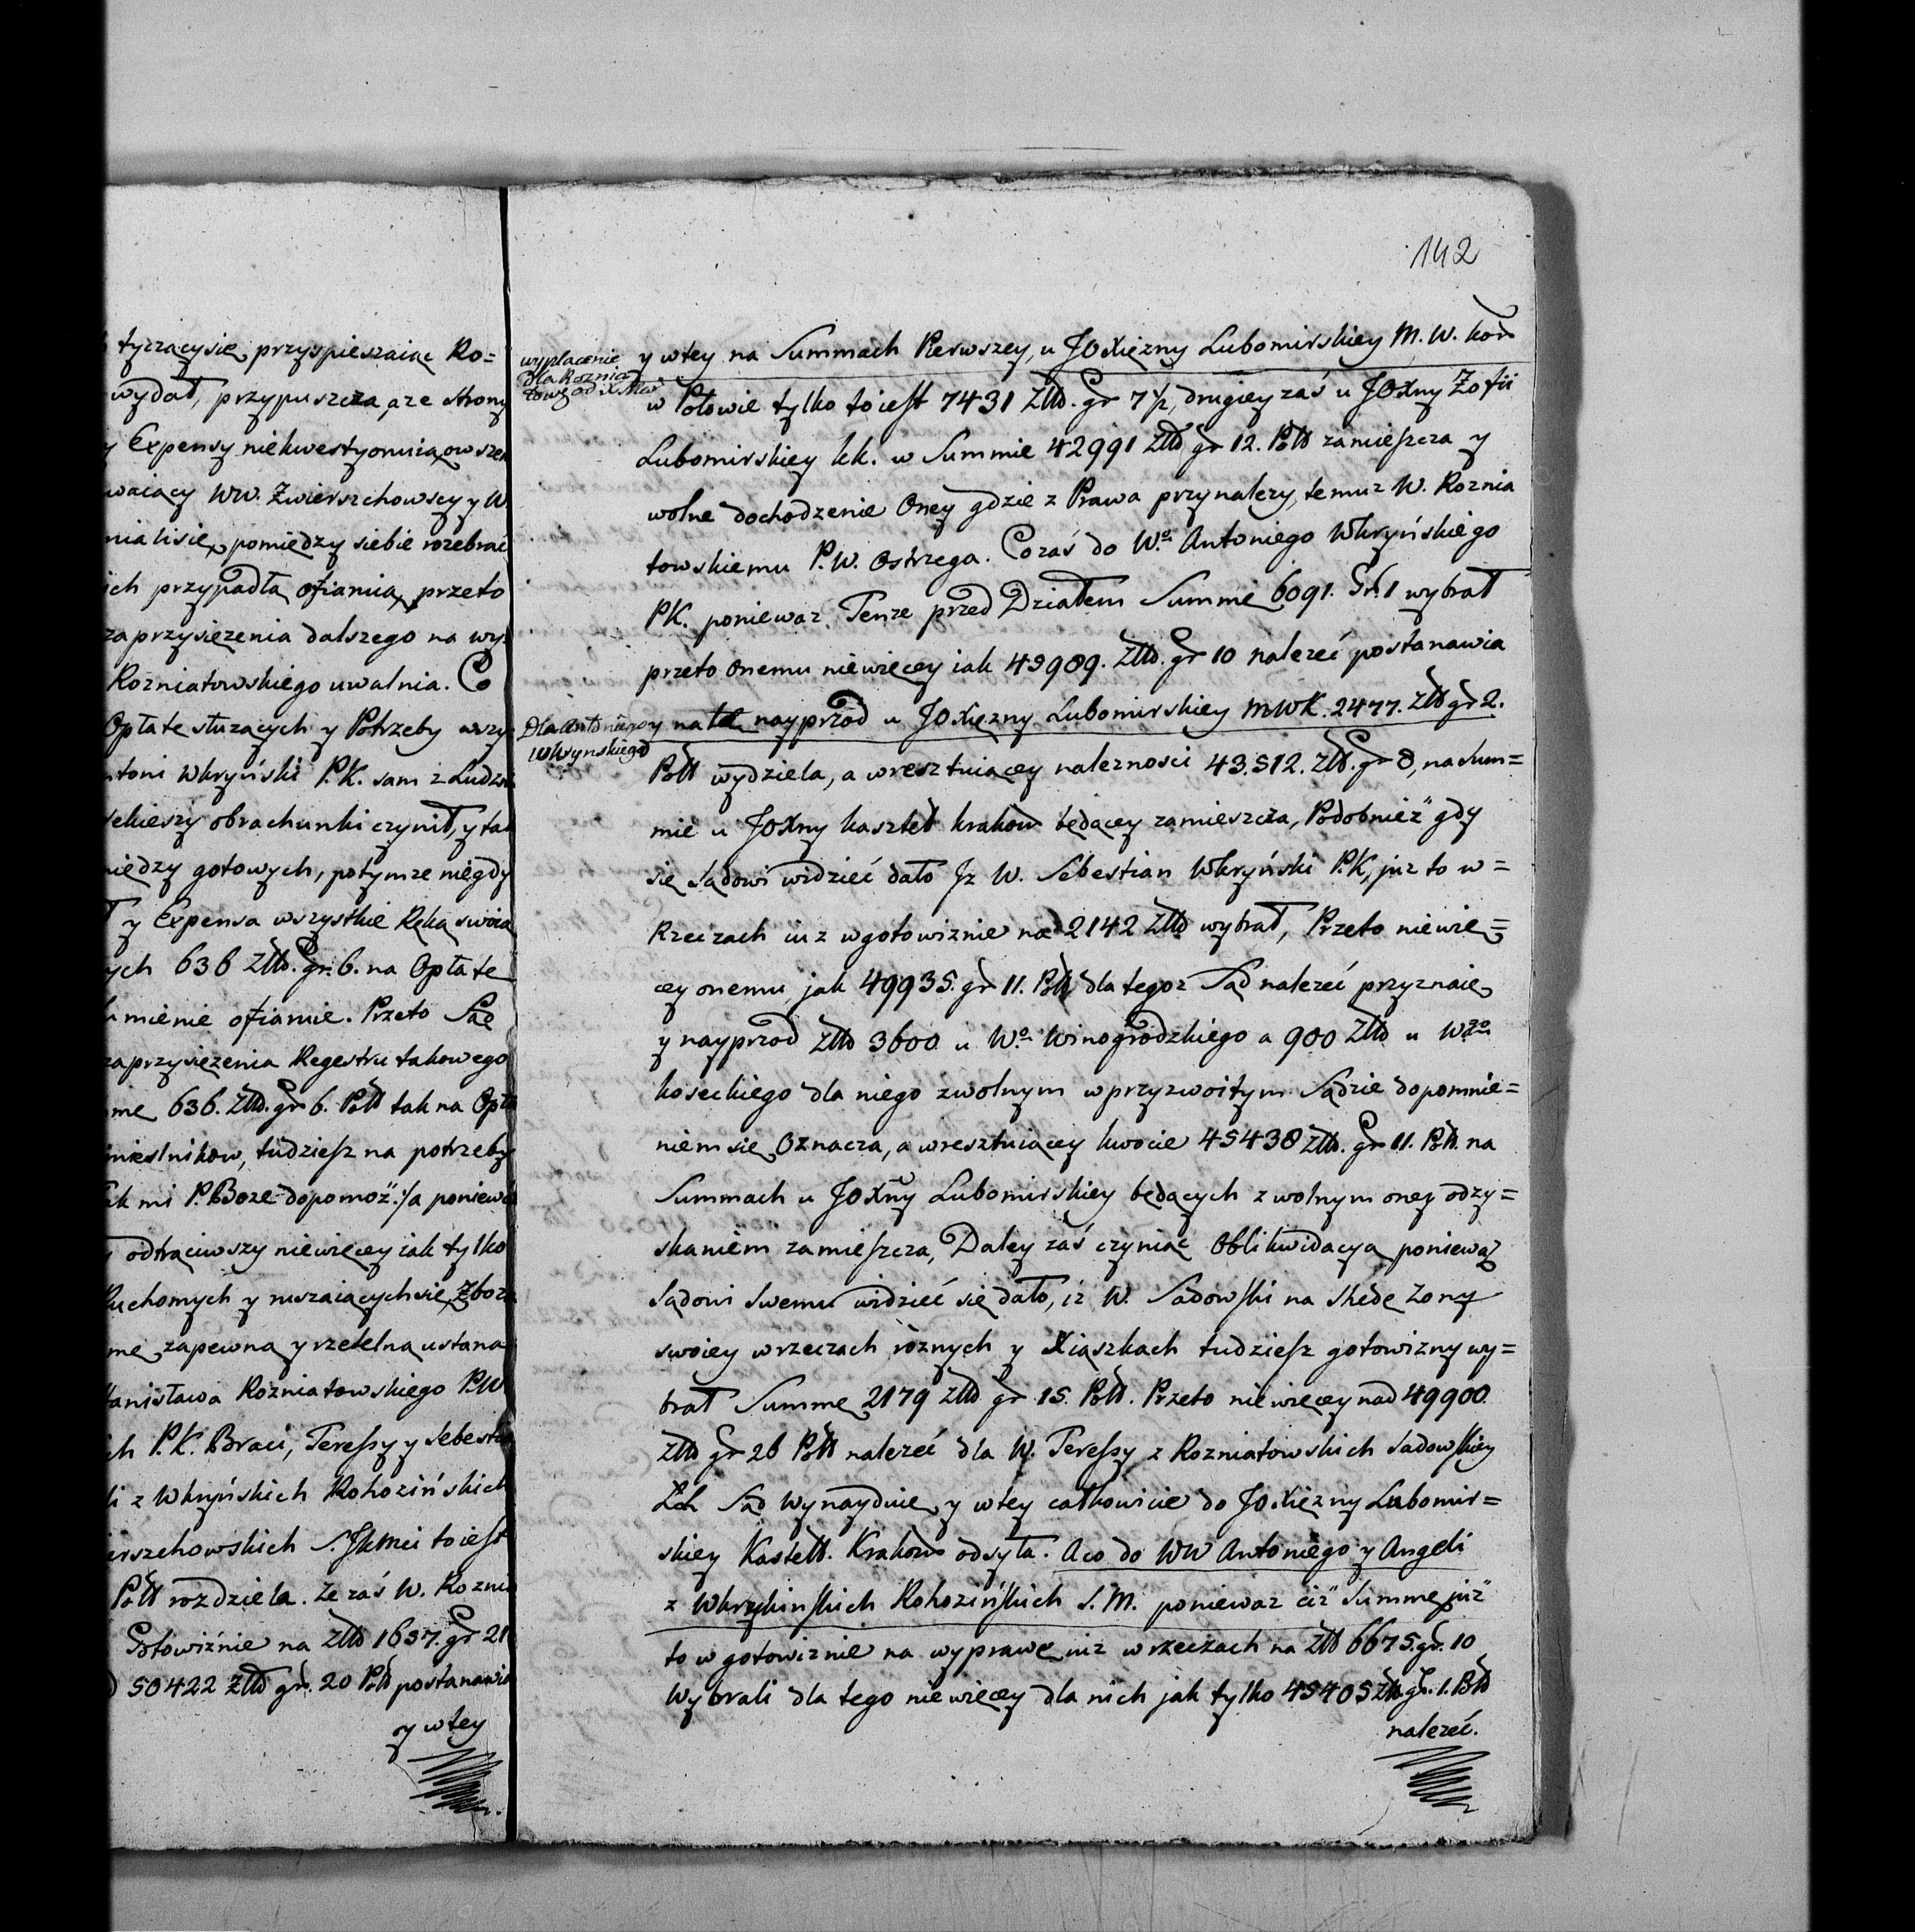 tyczącysię przyspieszaiąc Ro=
wydał, przypuszcza, a ze strony
y Expensy niekwestyonuią, owszem
waiący WW. Zwierszchowscy y W.
nialisię pomiędzy siebie rozebrać
ich przypadłą ofiaruią, przeto
zaprzysięzenia dalszego na wy
Rozniatowskiego uwalnia. Co
Opłatę służących y Potrzeby wszy
ntoni Wkryński P.K. sam z Ludzmi
obrachunki czynił, y tak
niędzy gotowych, potym ze nigdy
y Expensa wszystkie Ręką swoią
ych 636 Złł. gr. 6. na Opłatę
mienie ofiaruie. Przeto Sąd
zaprzysięzenia Regestru takowego
mę 636. Złł. gr 6. Poll tak na Opła
mieslnikow, tudziesz na potrzeby
ak mi P. Boze dopomoż :/ a poniewa
odtrąciwszy niewięcey iak tylko
Ruchomych y ruszaiącychsię, Zboża
mę zapewną y rzetelną ustana
tanisława Rozniatowskiego P.W.
ch P.K. Braci, Teressy y Sebestia
li z Wkryńskich Rohozińskich
ierszchowskich S. Jkmci toiest
Poll rozdziela. Ze zaś W. Roznia
Gotowiźnie na Złł 1657. gr 21
50422 Złł gr. 20 Poll postanawia
y wtey
142
wypłacenie
dla Roznia
tows: od X. Mar
y wtey na Summach Pierwszey, u JOXiężny Lubomirskiey M. W. Kor
w Połowie tylko toiest 7431 Złł. gr 7½, drugiey zaś u JOXny Zofii
Lubomirskiey kk. w Summie 42991 Złł gr 12. Poll zamieszcza y
wolne dochodzenie Oney gdzie z Prawa przynalezy, temuz W. Roznia
towskiemu P. W. Ostrzega. Co zaś do Wo. Antoniego Wkryńskiego
PK. poniewaz Tenze przed Działem Summę 6091. Gr. 1 wybrał
przeto onemu niewięcey iak 45989. Złł. gr 10 nalezeć postanawia
Dla Antoniego
Wkrynskiego
y na te nayprzod u JOXiężny Lubomirskiey MWK. 2477. Złł gr 2.
Poll wydziela, a wresztuiącey naleznosci 43.512. Złł. gr 8, na Sum=
mie u JOXny Kasztel Krakow będącey zamieszcza, Podobnież gdy
się Sądowi widzieć dało Jz W. Sebestian Wkryński P.K, juz to w=
Rzeczach iuz wgotowiznie nad 2142 Złł wybrał, Przeto niewię=
cey onemu jak 49935. gr 11. Poll dla tegoz Sąd nalezeć przyznaie,
y nayprzod Złł 3600 u Wo. Winogrodzkiego a 900 Złł u Wgo
Koseckiego dla niego zwolnym wprzyzwoitym Sądzie dopomnie=
niem się Oznacza, a wresztuiącey kwocie 45438 Złł. gr 11. Poll. na
Summach u JOXny Lubomirskiey będących z wolnym oney odzy=
skaniem zamieszcza, Daley zaś czyniąc Oblikwidacyą poniewaz
Sądowi Swemu widzieć się dało, iż W. Sadowski na Shedę Zony
swoiey wrzeczach rożnych y Xiąszkach tudziesz gotowizny wy=
brał Summę 2179 Złł gr 15. Poll. Przeto niewięcey nad 49900
Złł gr 26 Poll nalezeć dla W. Teressy z Rozniatowskich Sadowskiey
Sąd Wynayduie y wtey całkowicie do JOXięzny Lubomir=
skiey Kastell. Krakow odsyła. A co do WW Antoniego y Angeli
z Wkrykinskich Rohozińskich S.M. poniewaz ciż Summę już
to w gotowiznie na wyprawę, iuz w rzeczach na Złł 6675. gr. 10
Wybrali dla tego niewięcey dla nich jak tylko 45405 Złł. gr. 1. Poll
nalezeć.